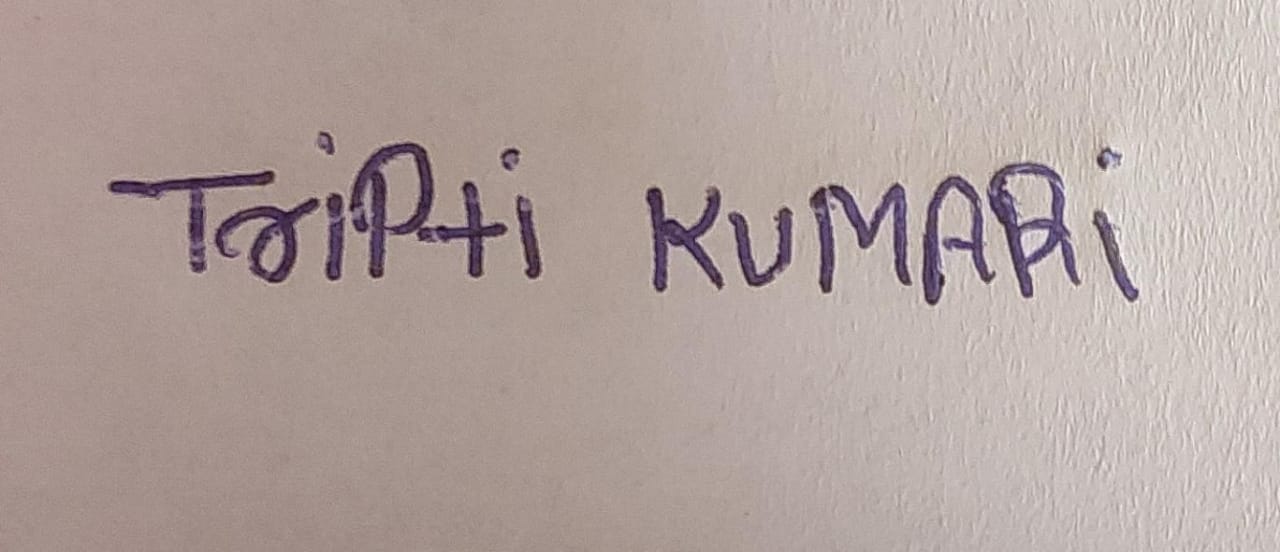 TriPti KUMARi